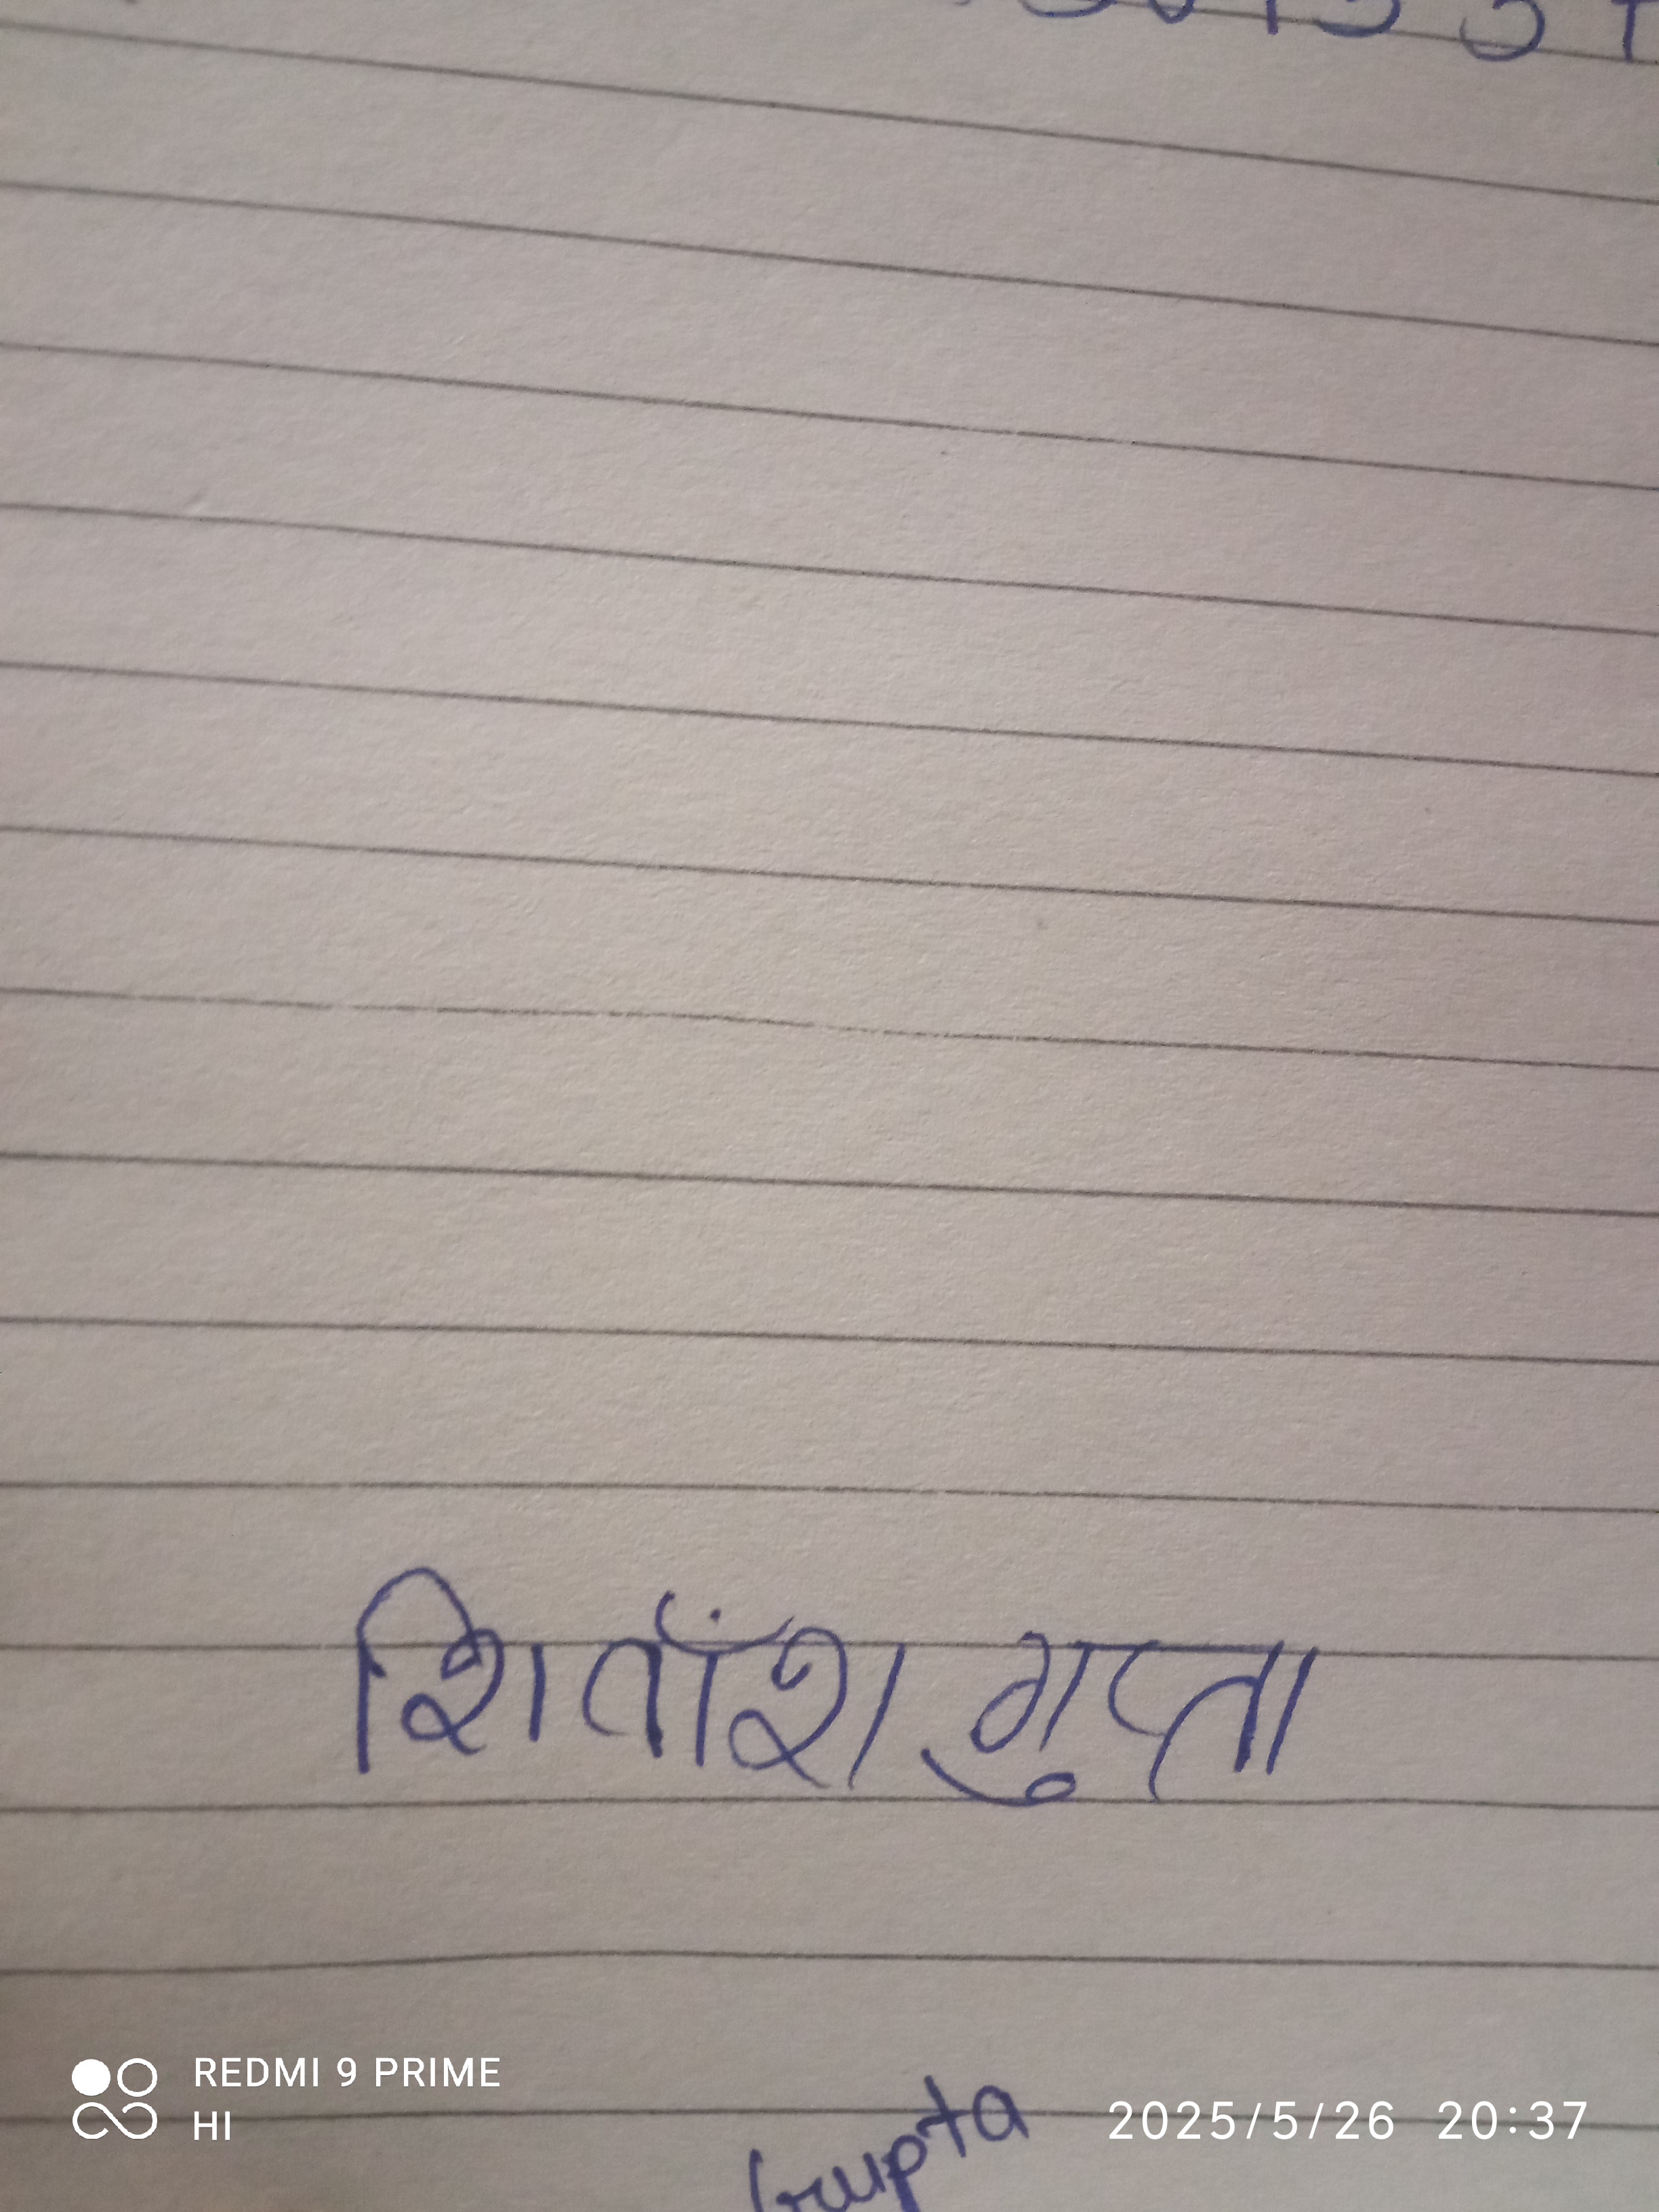 शिताँश गुप्ता
Gupta
REDMI 9 PRIME
HI
2025/5/26 20:37